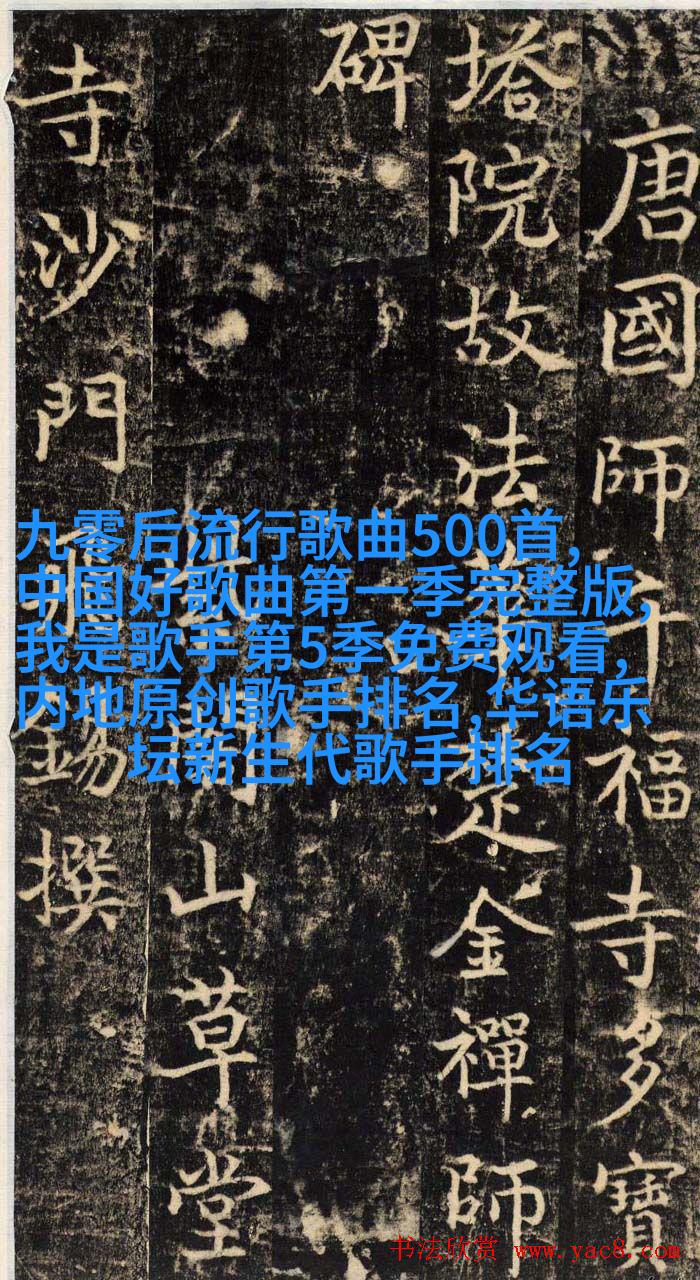 唐國師千福寺多寶
塔院故法華楚金禪師
碑
山草堂
寺沙門飛錫撰
九零后流行歌曲500首,
中国好歌曲第一季完整版,
我是歌手第5季免费观看,
内地原创歌手排名,华语乐
坛新生代歌手排名
书法欣赏 www.yac8.com